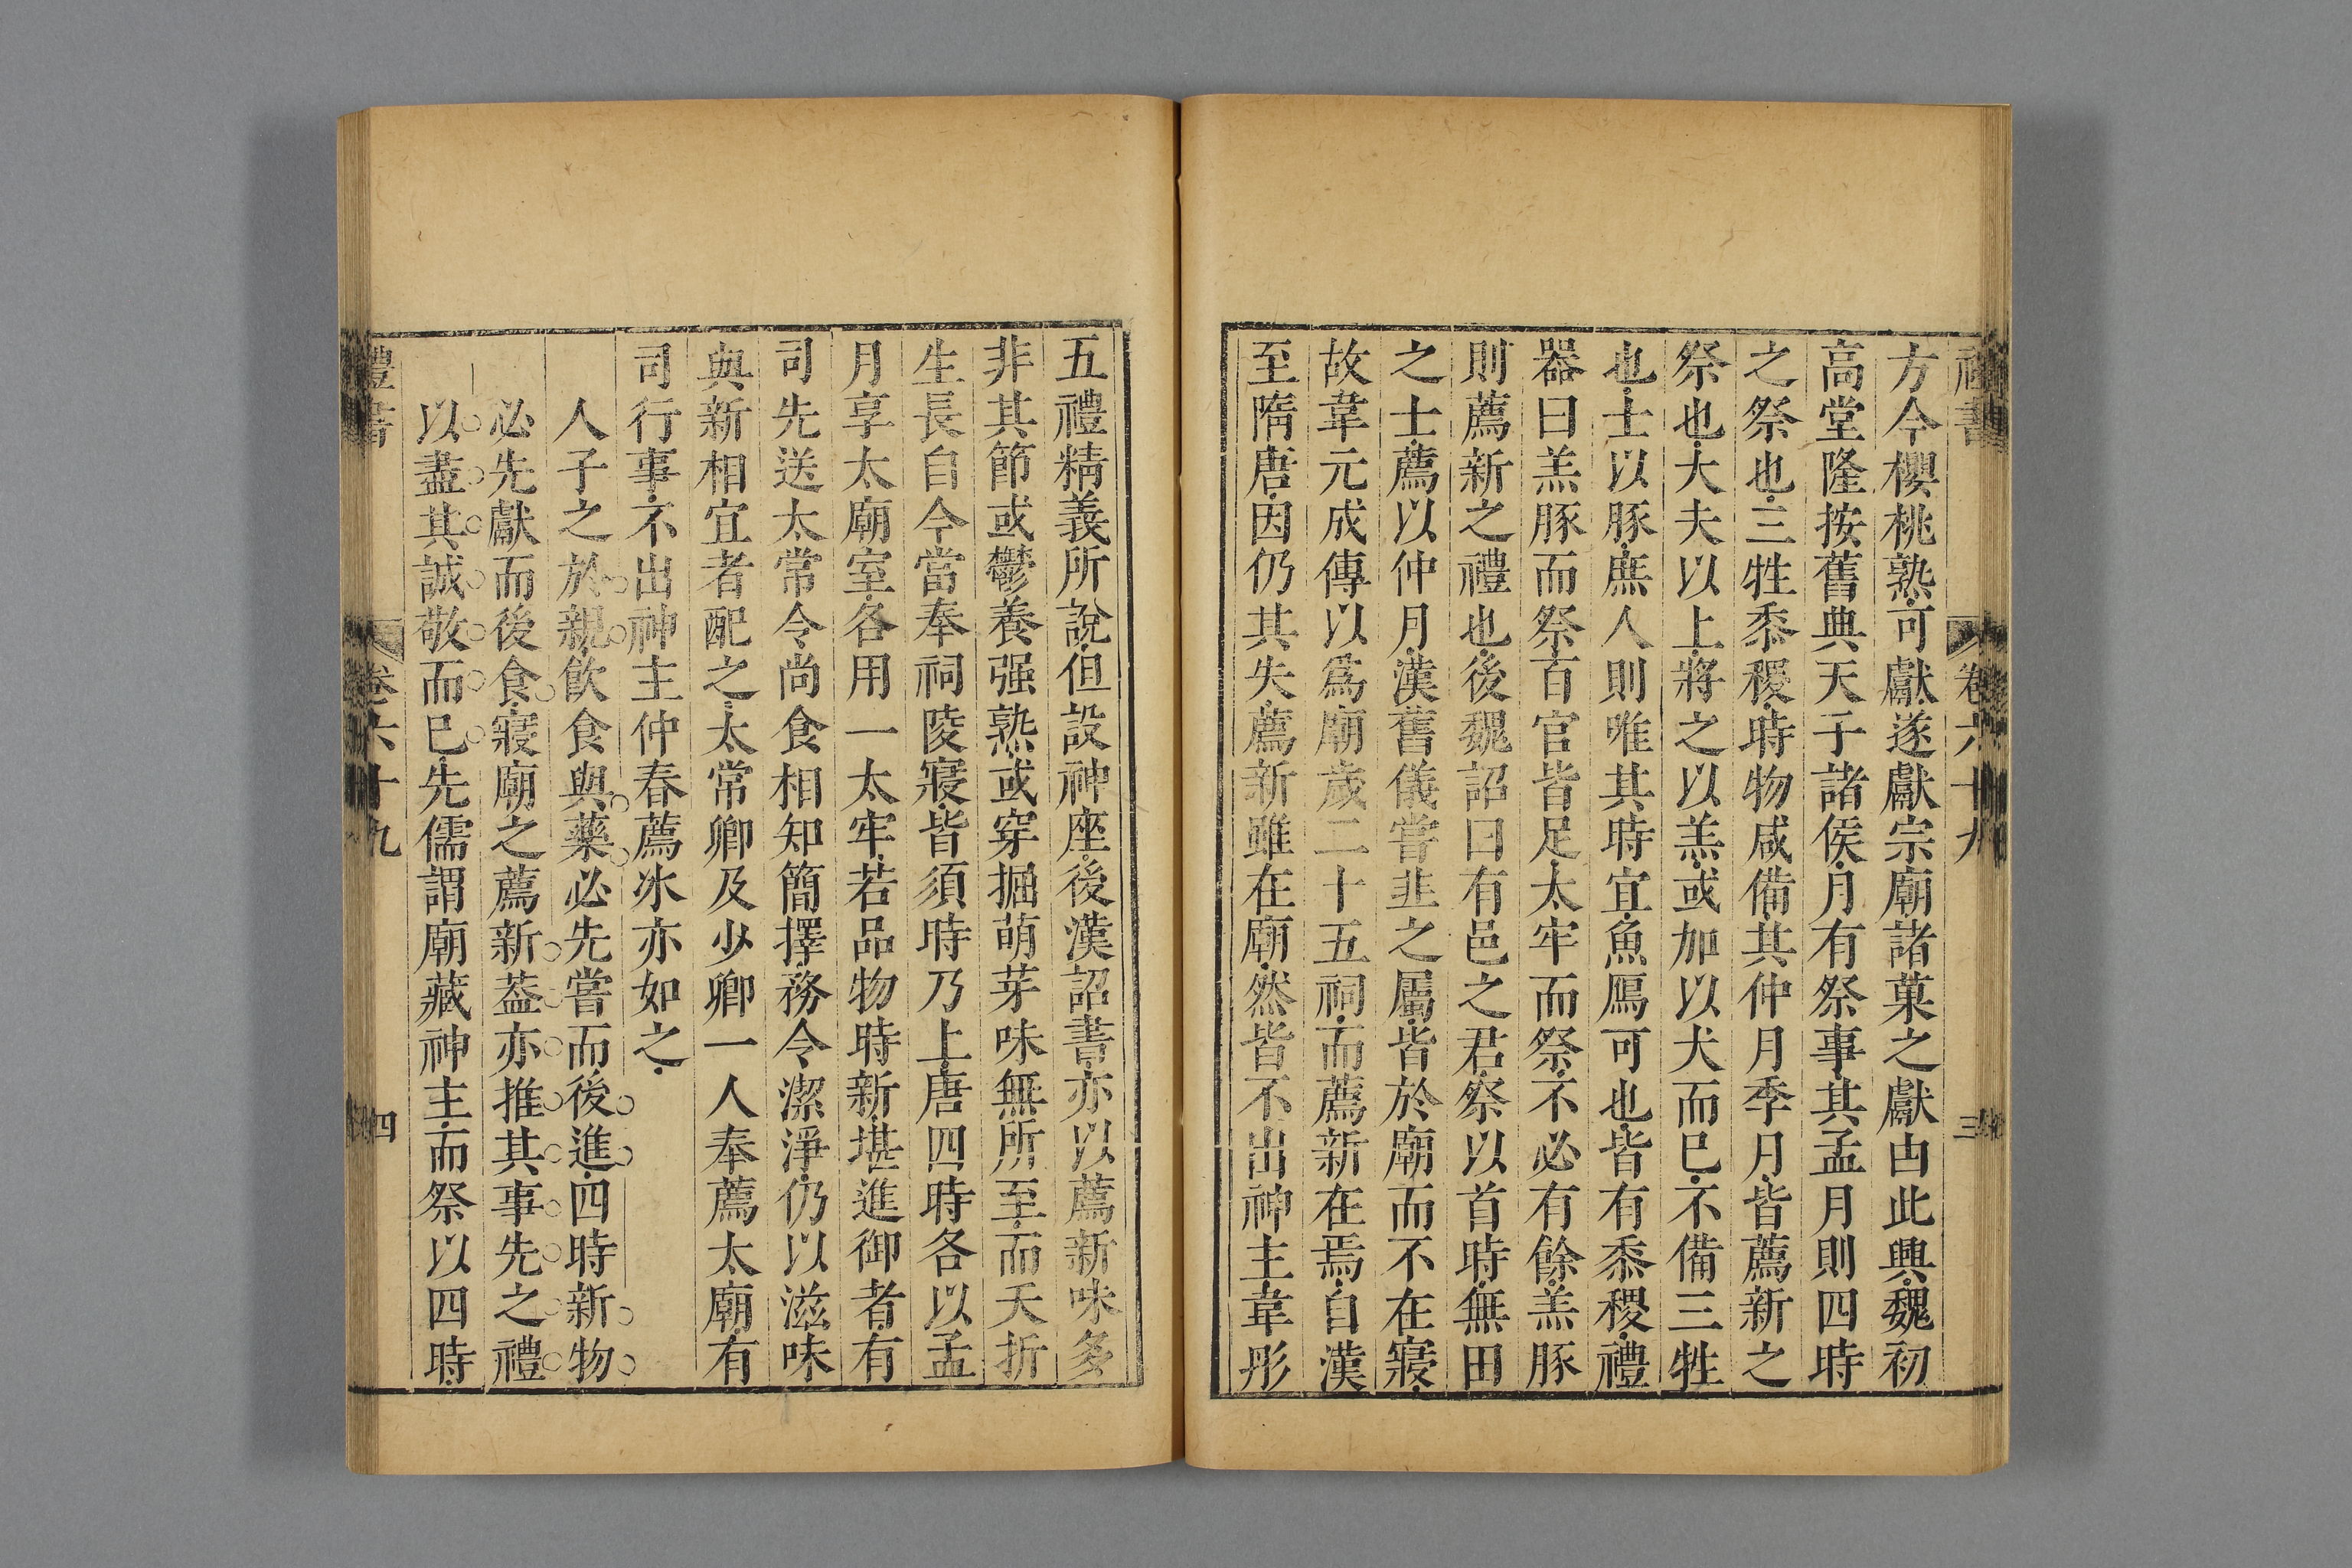 禮書 卷六十九 三
方今櫻桃熟可獻遂獻宗廟諸菓之獻由此興魏初
高堂隆按舊典天子諸侯月有祭事其孟月則四時
之祭也三牲黍稷時物咸備其仲月季月皆薦新之
祭也大夫以上將之以羔或加以犬而巳不備三牲
也士以豚庶人則唯其時宜魚鴈可也皆有黍稷禮
器曰羔豚而祭百官皆足太牢而祭不必有餘羔豚
則薦新之禮也後魏詔曰有邑之君祭以首時無田
之士薦以仲月漢舊儀嘗韭之屬皆於廟而不在寢
故韋元成傳以爲廟歲二十五祠而薦新在焉自漢
至隋唐因仍其失薦新雖在廟然皆不出神主韋彤
五禮精義所說但設神座後漢詔書亦以薦新味多
非其節或鬱養强熟或穿掘萌芽味無所至而夭折
生長自今當奉祠陵寢皆須時乃上唐四時各以孟
月享太廟室各用一太牢若品物時新堪進御者有
司先送太常令尚食相知簡擇務令潔淨仍以滋味
與新相宜者配之太常卿及少卿一人奉薦太廟有
司行事不出神主仲春薦冰亦如之
人子之於親飲食與藥必先嘗而後進四時新物
必先獻而後食寢廟之薦新葢亦推其事先之禮
以盡其誠敬而巳先儒謂廟藏神主而祭以四時
禮書 卷六十九 四